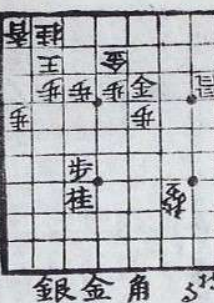 香桂
王金
歩歩歩金
歩歩
歩
桂
銀金角